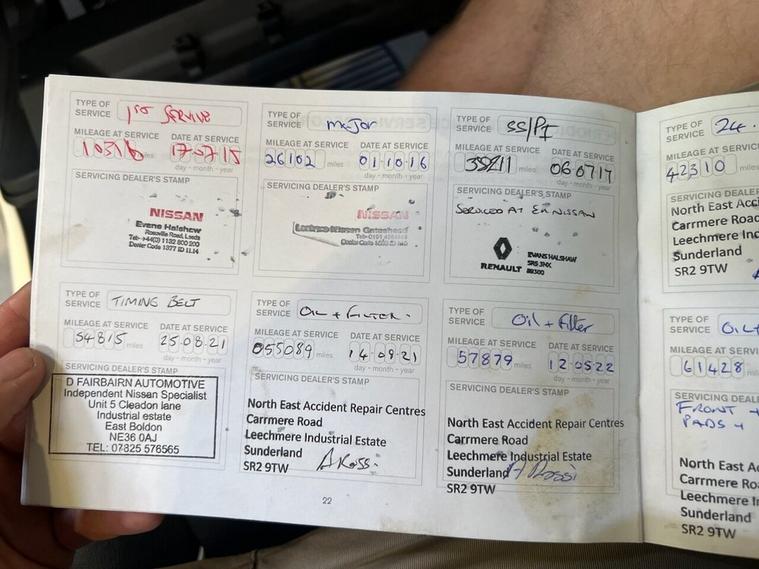 TYPE OF SERVICE 1ST SERVICE
MILEAGE AT SERVICE DATE AT SERVICE
10316 miles 17 07 15
day - month - year
SERVICING DEALER'S STAMP
NISSAN
Evans Halshaw
Roseville Road, Leeds
Tel: +44(0) 1132 800 200
Dealer Code 1377 ID 1L14
TYPE OF SERVICE major
MILEAGE AT SERVICE DATE AT SERVICE
26102 miles 01 10 16
day - month - year
SERVICING DEALER'S STAMP
NISSAN
Nissan Gateshead
Dealer Code
TYPE OF SERVICE SS/PI
MILEAGE AT SERVICE DATE AT SERVICE
miles 06 07 17
day - month - year
SERVICING DEALER'S STAMP
SERVICED AT EH NISSAN
RENAULT
EVANS HALSHAW
SR5 3NX
89300
TYPE OF SERVICE 24
MILEAGE AT SERVICE
42310 miles
SERVICING DEALER
North East Acci
Carrmere Road
Leechmere Ind
Sunderland
SR2 9TW
TYPE OF SERVICE TIMING BELT
MILEAGE AT SERVICE DATE AT SERVICE
54815 miles 25.08.21
day - month - year
SERVICING DEALER'S STAMP
D FAIRBAIRN AUTOMOTIVE
Independent Nissan Specialist
Unit 5 Cleadon lane
Industrial estate
East Boldon
NE36 0AJ
TEL: 07825 576565
TYPE OF SERVICE OIL + FILTER.
MILEAGE AT SERVICE DATE AT SERVICE
055089 miles 14.09.21
day - month - year
SERVICING DEALER'S STAMP
North East Accident Repair Centres
Carrmere Road
Leechmere Industrial Estate
Sunderland
SR2 9TW A Rossi
TYPE OF SERVICE Oil + Filter
MILEAGE AT SERVICE DATE AT SERVICE
57879 miles 12.05.22
day - month - year
SERVICING DEALER'S STAMP
North East Accident Repair Centres
Carrmere Road
Leechmere Industrial Estate
Sunderland A Rossi
SR2 9TW
TYPE OF SERVICE
MILEAGE AT SERVICE
61428 miles
SERVICING DEALER'S
FRONT +
PADS +
North East A
Carrmere Roa
Leechmere I
Sunderland
SR2 9TW
22